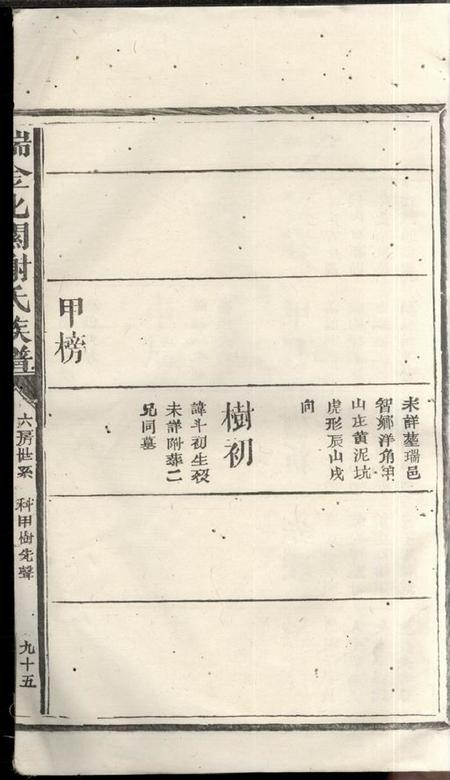 未詳墓瑞邑
智鄉洋角
山庄黄泥坑
虎形辰山戌
向
樹初
諱斗初生殁
未詳附葬二
兄同墓
甲榜
瑞金北關謝氏族譜
六房世系
科甲樹先聲
九十五